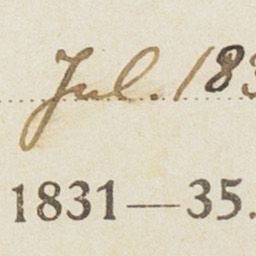 Jul. 183
1831—35.